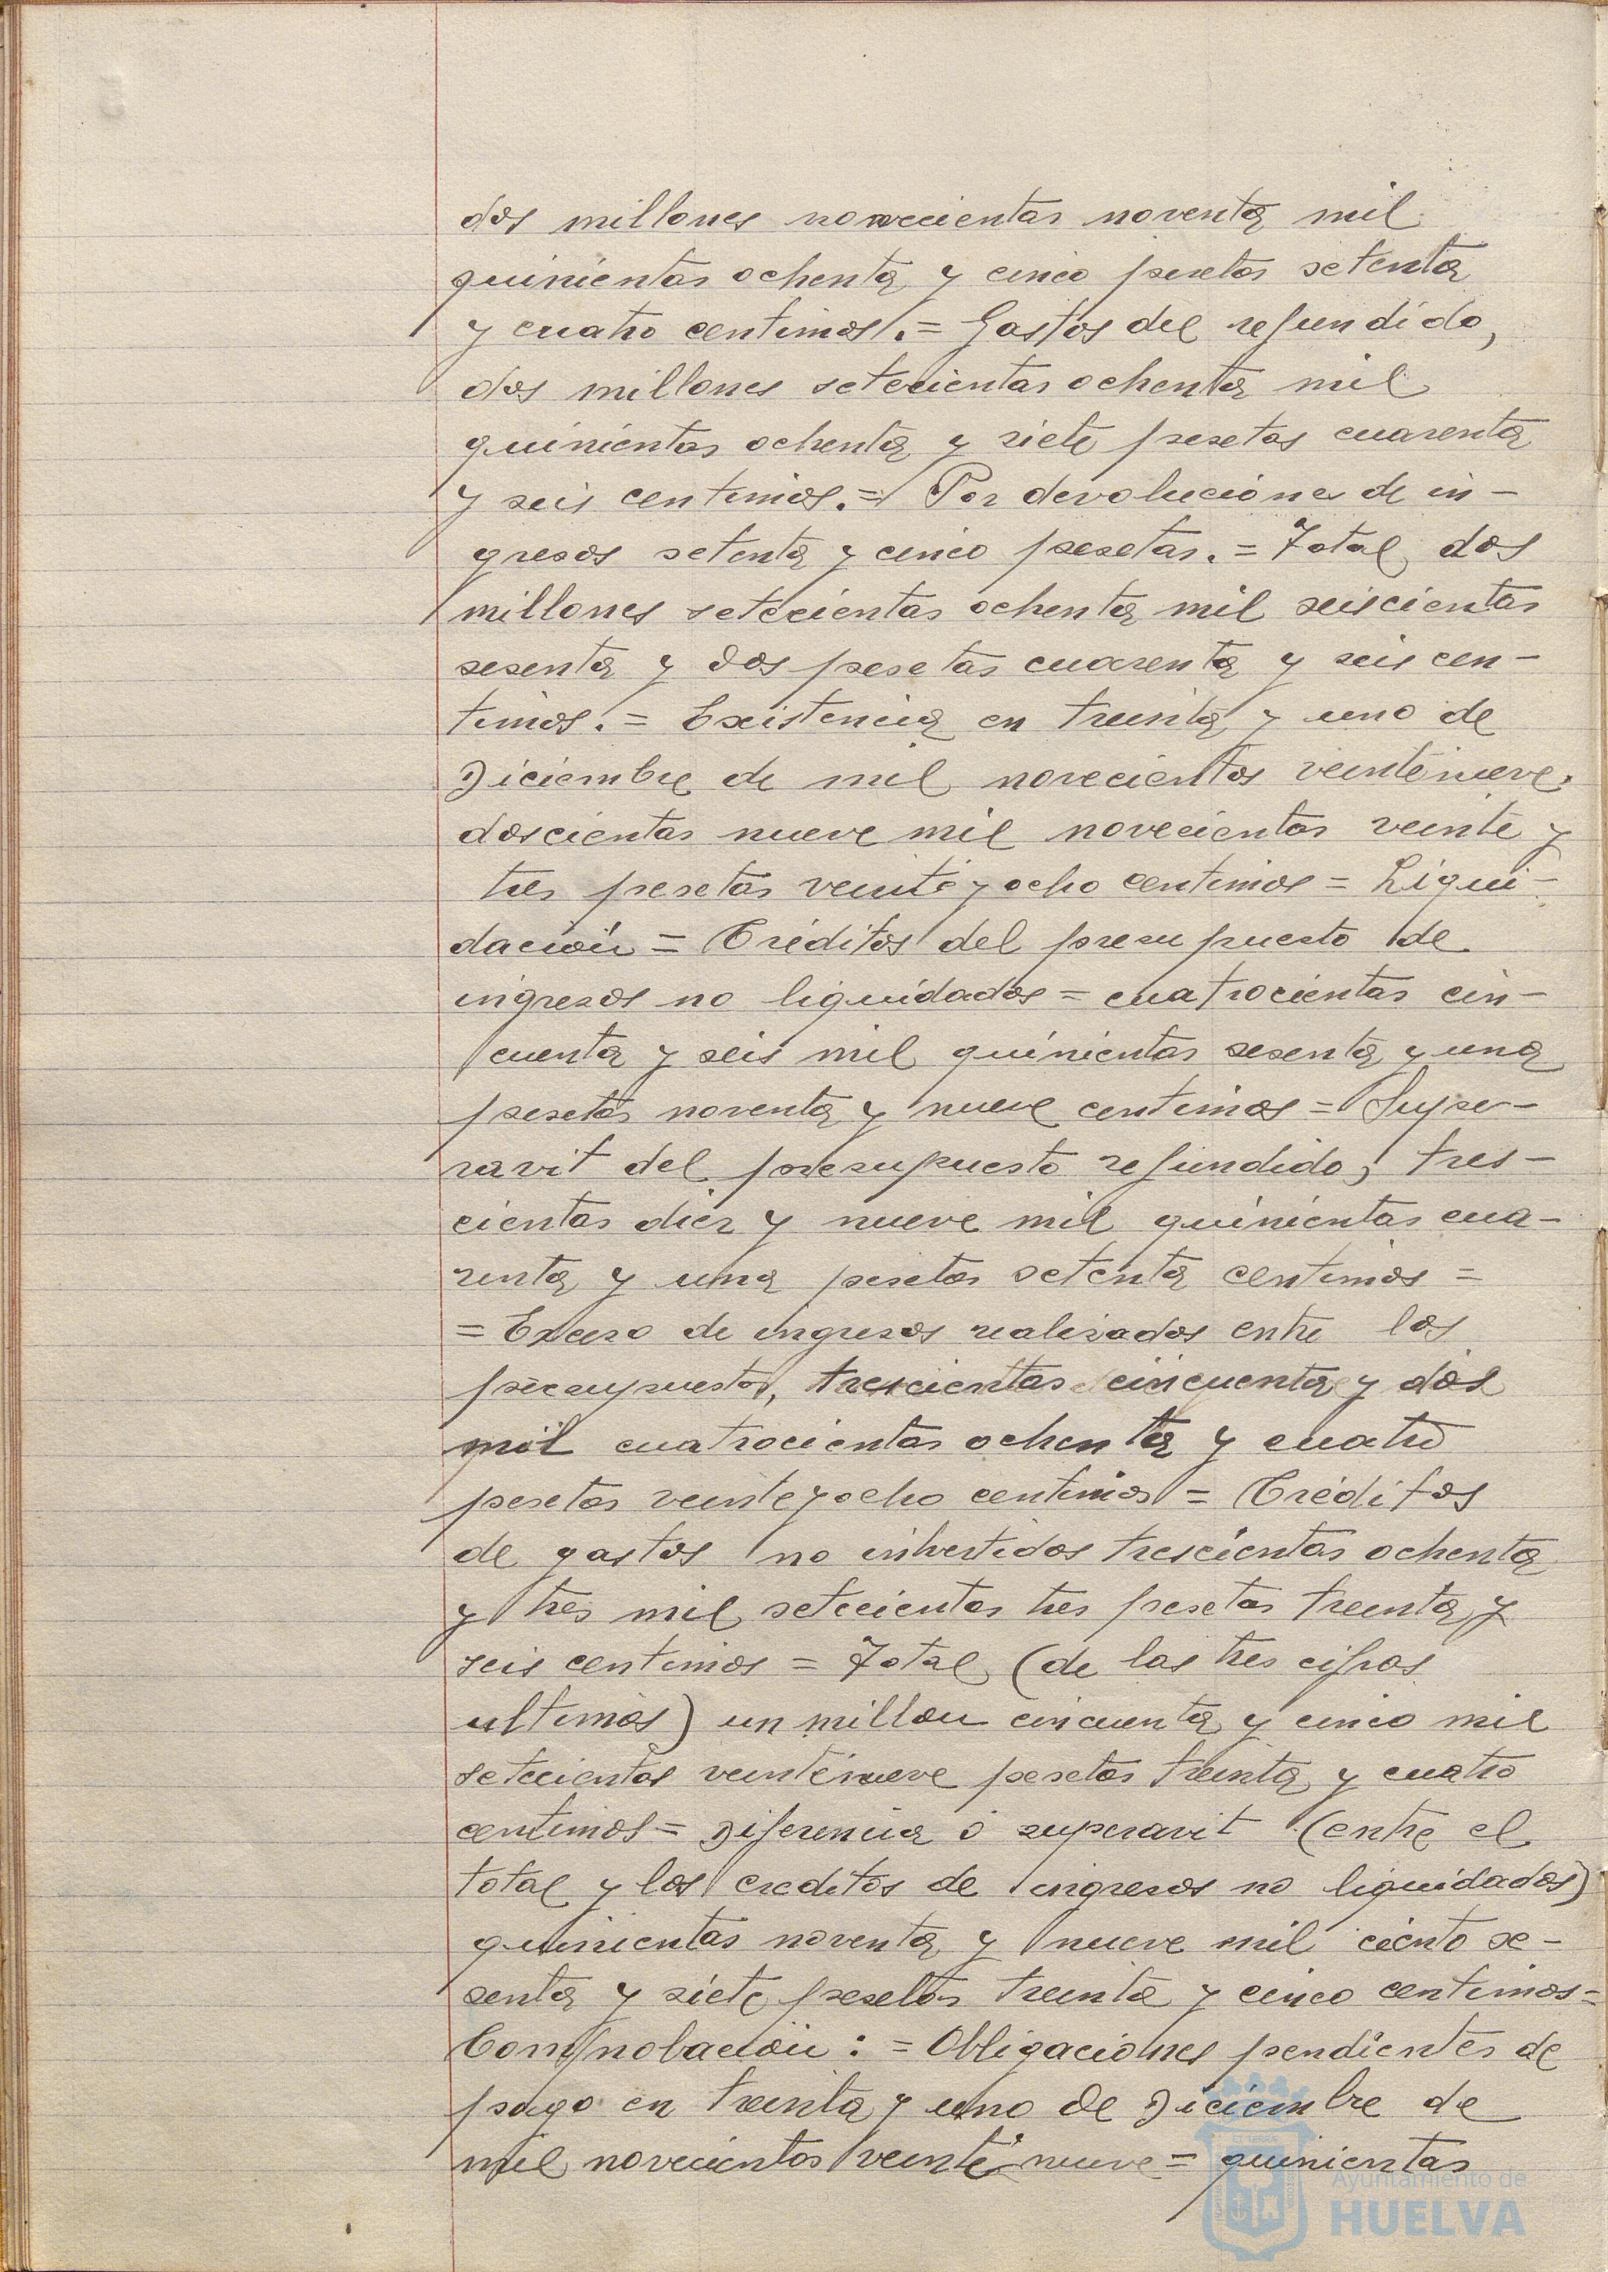 dos millones novecientas noventa mil
quinientas ochenta y cinco pesetas setenta
y cuatro centimos.= Gastos del refundido,
dos millones setecientas ochenta mil
quinientas ochenta y siete pesetas cuarenta
y seis centimos.= Por devoluciones de in-
gresos setenta y cinco pesetas.= Total dos
millones setecientas ochenta mil seiscientas
sesenta y dos pesetas cuarenta y seis cen-
timos.= Existencia en treinta y uno de
Diciembre de mil novecientos veintenueve.
doscientas nueve mil novecientas veinte y
tres pesetas veinte y ocho centimos = Liqui-
dación = Créditos del presupuesto de
ingresos no liquidados = cuatrocientas cin-
cuenta y seis mil quinientas sesenta y una
pesetas noventa y nueve centimos = Supe-
ravit del presupuesto refundido, tres-
cientas diez y nueve mil quinientas cua-
renta y una pesetas setenta centimos =
= Exceso de ingresos realizados entre los
presupuestos, trescientas cincuenta y dos
mil cuatrocientas ochenta y cuatro
pesetas veinte y ocho centimos = Créditos
de gastos no invertidos trescientas ochenta
y tres mil setecientas tres pesetas treinta y
seis centimos = Total (de las tres cifras
ultimas) un millon cincuenta y cinco mil
setecientas veintenueve pesetas treinta y cuatro
centimos = Diferencia ó superavit (entre el
total y los creditos de ingresos no liquidados)
quinientas noventa y nueve mil ciento se-
senta y siete pesetas treinta y cinco centimos =
Comprobación : = Obligaciones pendientes de
pago en treinta y uno de Diciembre de
mil novecientos veinte nueve = quinientas
Ayuntamiento de
HUELVA